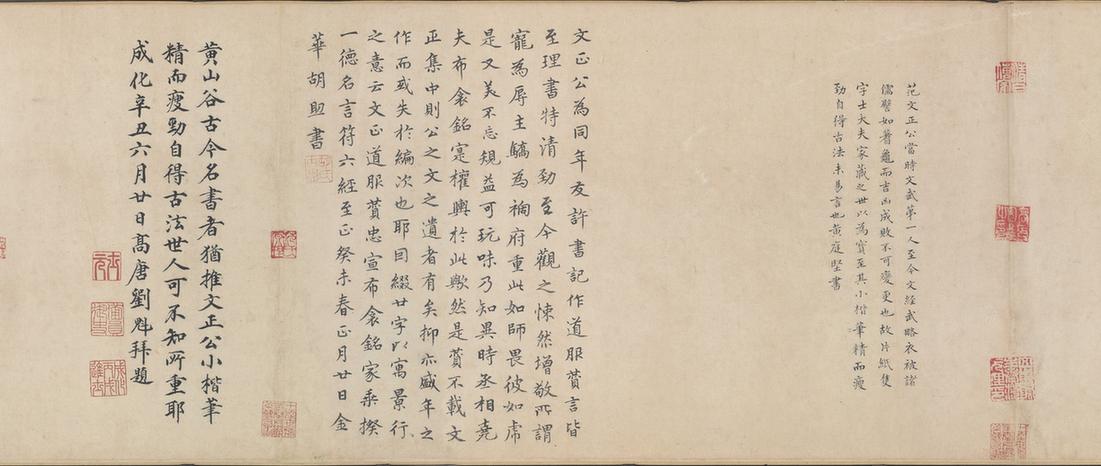 范文正公當時文武第一人至今文經武略衣被諸
儒譬如蓍龜而吉凶成敗不可變更也故片紙隻
字士大夫家藏之世以為寶至其小楷筆精而瘦
勁自得古法未易言也黃庭堅書
文正公為同年友許書記作道服賛言皆
至理書特清勁至今觀之悚然增敬所謂
寵為辱主驕為禍府重此如師畏彼如虎
是又美不忘規益可玩味乃知異時丞相堯
夫布衾銘寔權輿於此歟然是賛不載文
正集中則公之文之遺者有矣抑亦盛年之
作而或失於編次也耶因綴廿字以寓景行
之意云文正道服賛忠宣布衾銘家乘揆
一德名言符六經至正癸未春正月廿日金
華胡助書
黃山谷古今名書者猶推文正公小楷筆
精而瘦勁自得古法世人可不知所重耶
成化辛丑六月廿日高唐劉魁拜題